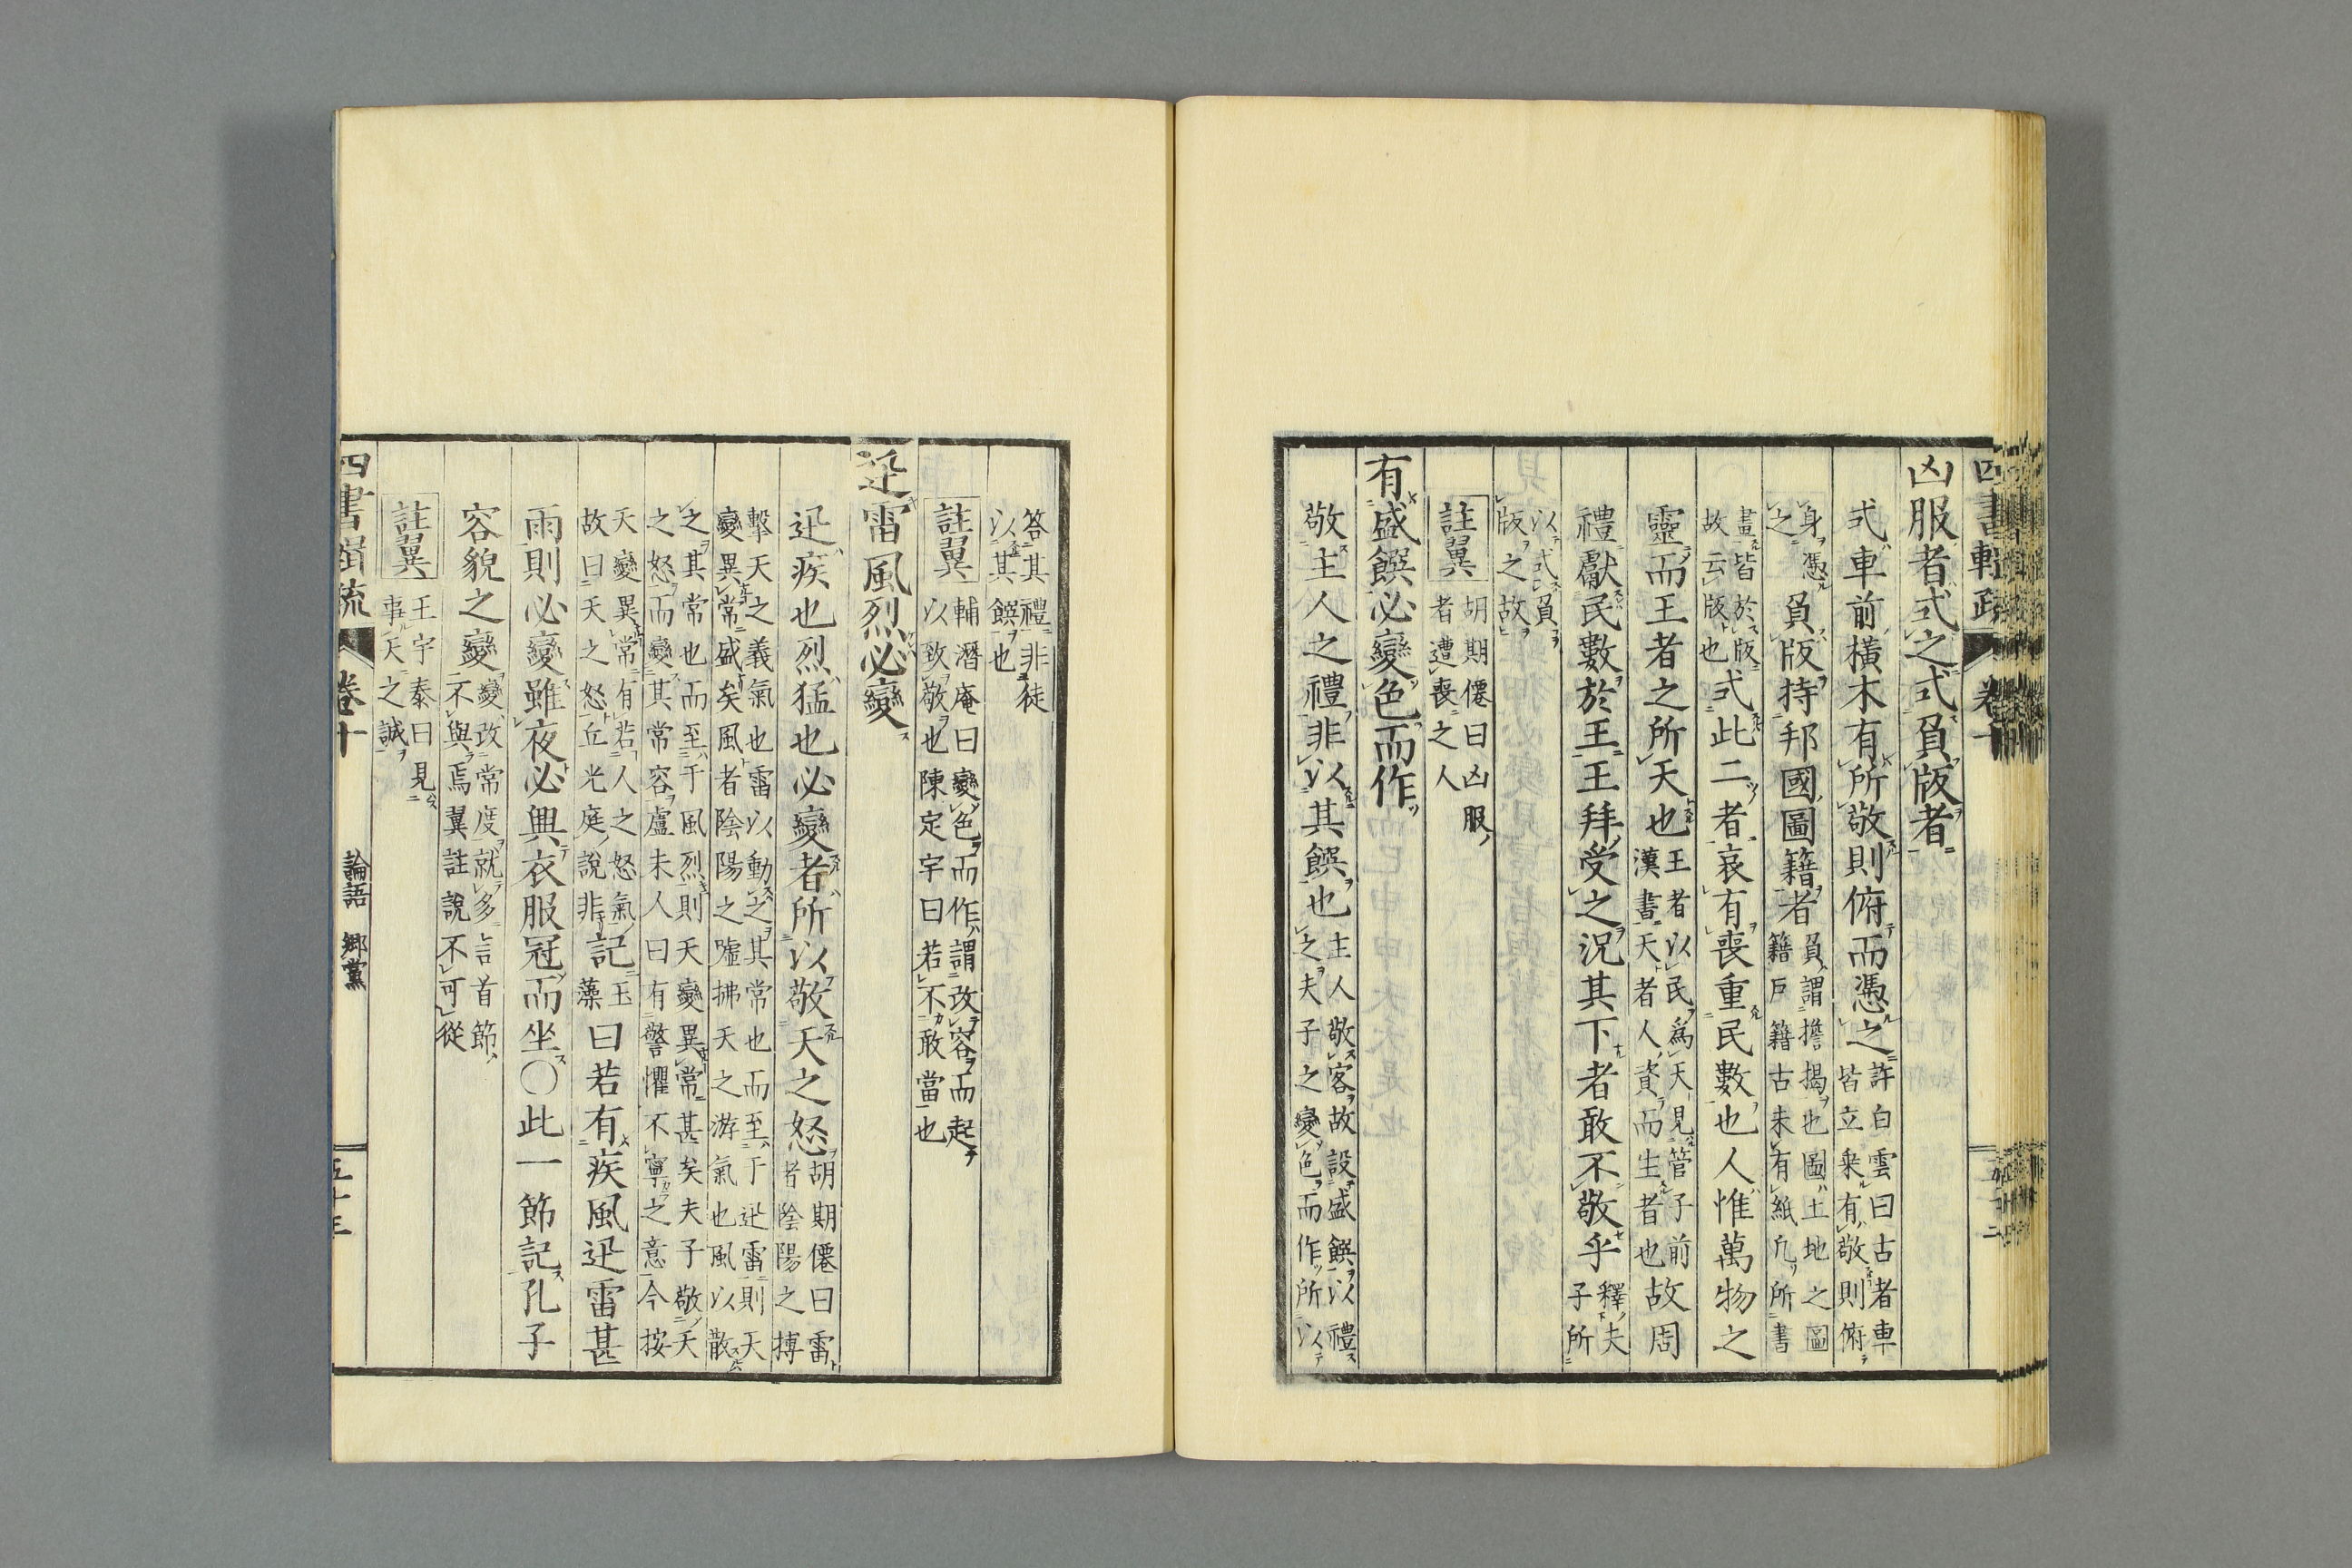 四書輯疏 卷十
凶服者式之式負版者
式車前橫木有所敬則俯而憑之 許白雲曰古者車
皆立乘有敬則俯
身憑
之
負版持邦國圖籍者 負謂擔揭也圖土地之圖
籍戶籍古未有紙凡所書
畫皆於版
故云版也
式此二者哀有喪重民數也人惟萬物之
靈而王者之所天也 王者以民爲天見管子前
漢書天者人資而生者也
故周
禮獻民數於王王拜受之況其下者敢不敬乎 釋夫
子所
以式負
版之故
註翼 胡期僊曰凶服
者遭喪之人
有盛饌必變色而作
敬主人之禮非以其饌也 主人敬客故設盛饌以禮
之夫子之變色而作所以
答其禮非徒
以其饌也
註翼 輔潛庵曰變色而作謂改容而起
以致敬也陳定宇曰若不敢當也
迅雷風烈必變
迅疾也烈猛也必變者所以敬天之怒 胡期僊曰雷
者陰陽之搏
擊天之義氣也雷以動之其常也而至于迅雷則天
變異常盛矣風者陰陽之噓拂天之游氣也風以散
之其常也而至于風烈則天變異常甚矣夫子敬天
之怒而變其常容盧未人曰有警懼不寧之意今按
天變異常有若人之怒氣
故曰天之怒丘光庭說非
記 玉
藻
曰若有疾風迅雷甚
雨則必變雖夜必興衣服冠而坐〇此一節記孔子
容貌之變 變改常度就多言首節
不與焉翼註說不可從
註翼 王宇泰曰見
事天之誠
四書輯疏 卷十 論語 鄕黨 五十三